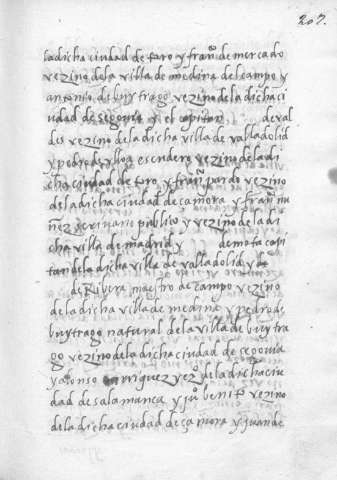 207.
la dicha ciudad de toro y fran^co de mercado
vezino de la villa de medina del campo y
antonio de buytrago vezino de la dicha ci
udad de segouia y el capitan de val
des vezino de la dicha villa de valladolid
y pedro de ulloa escudero vezino de la di
cha ciudad de toro y fran^co pardo vezino
de la dicha ciudad de çamora y fran^co nu
ñez escriuano publico y vezino de la di
cha villa de madrid y de mota capi
tan de la dicha villa de valladolid y
de Ribera maestro de campo vezino
de la dicha villa de medina y pedro de
buytrago natural de la villa de buytra
go vezino de la dicha ciudad de segouia
y alonso enrriquez vz^o de la dicha ciu
dad de salamanca y ju^o benito vezino
de la dicha ciudad de çamora y juan de